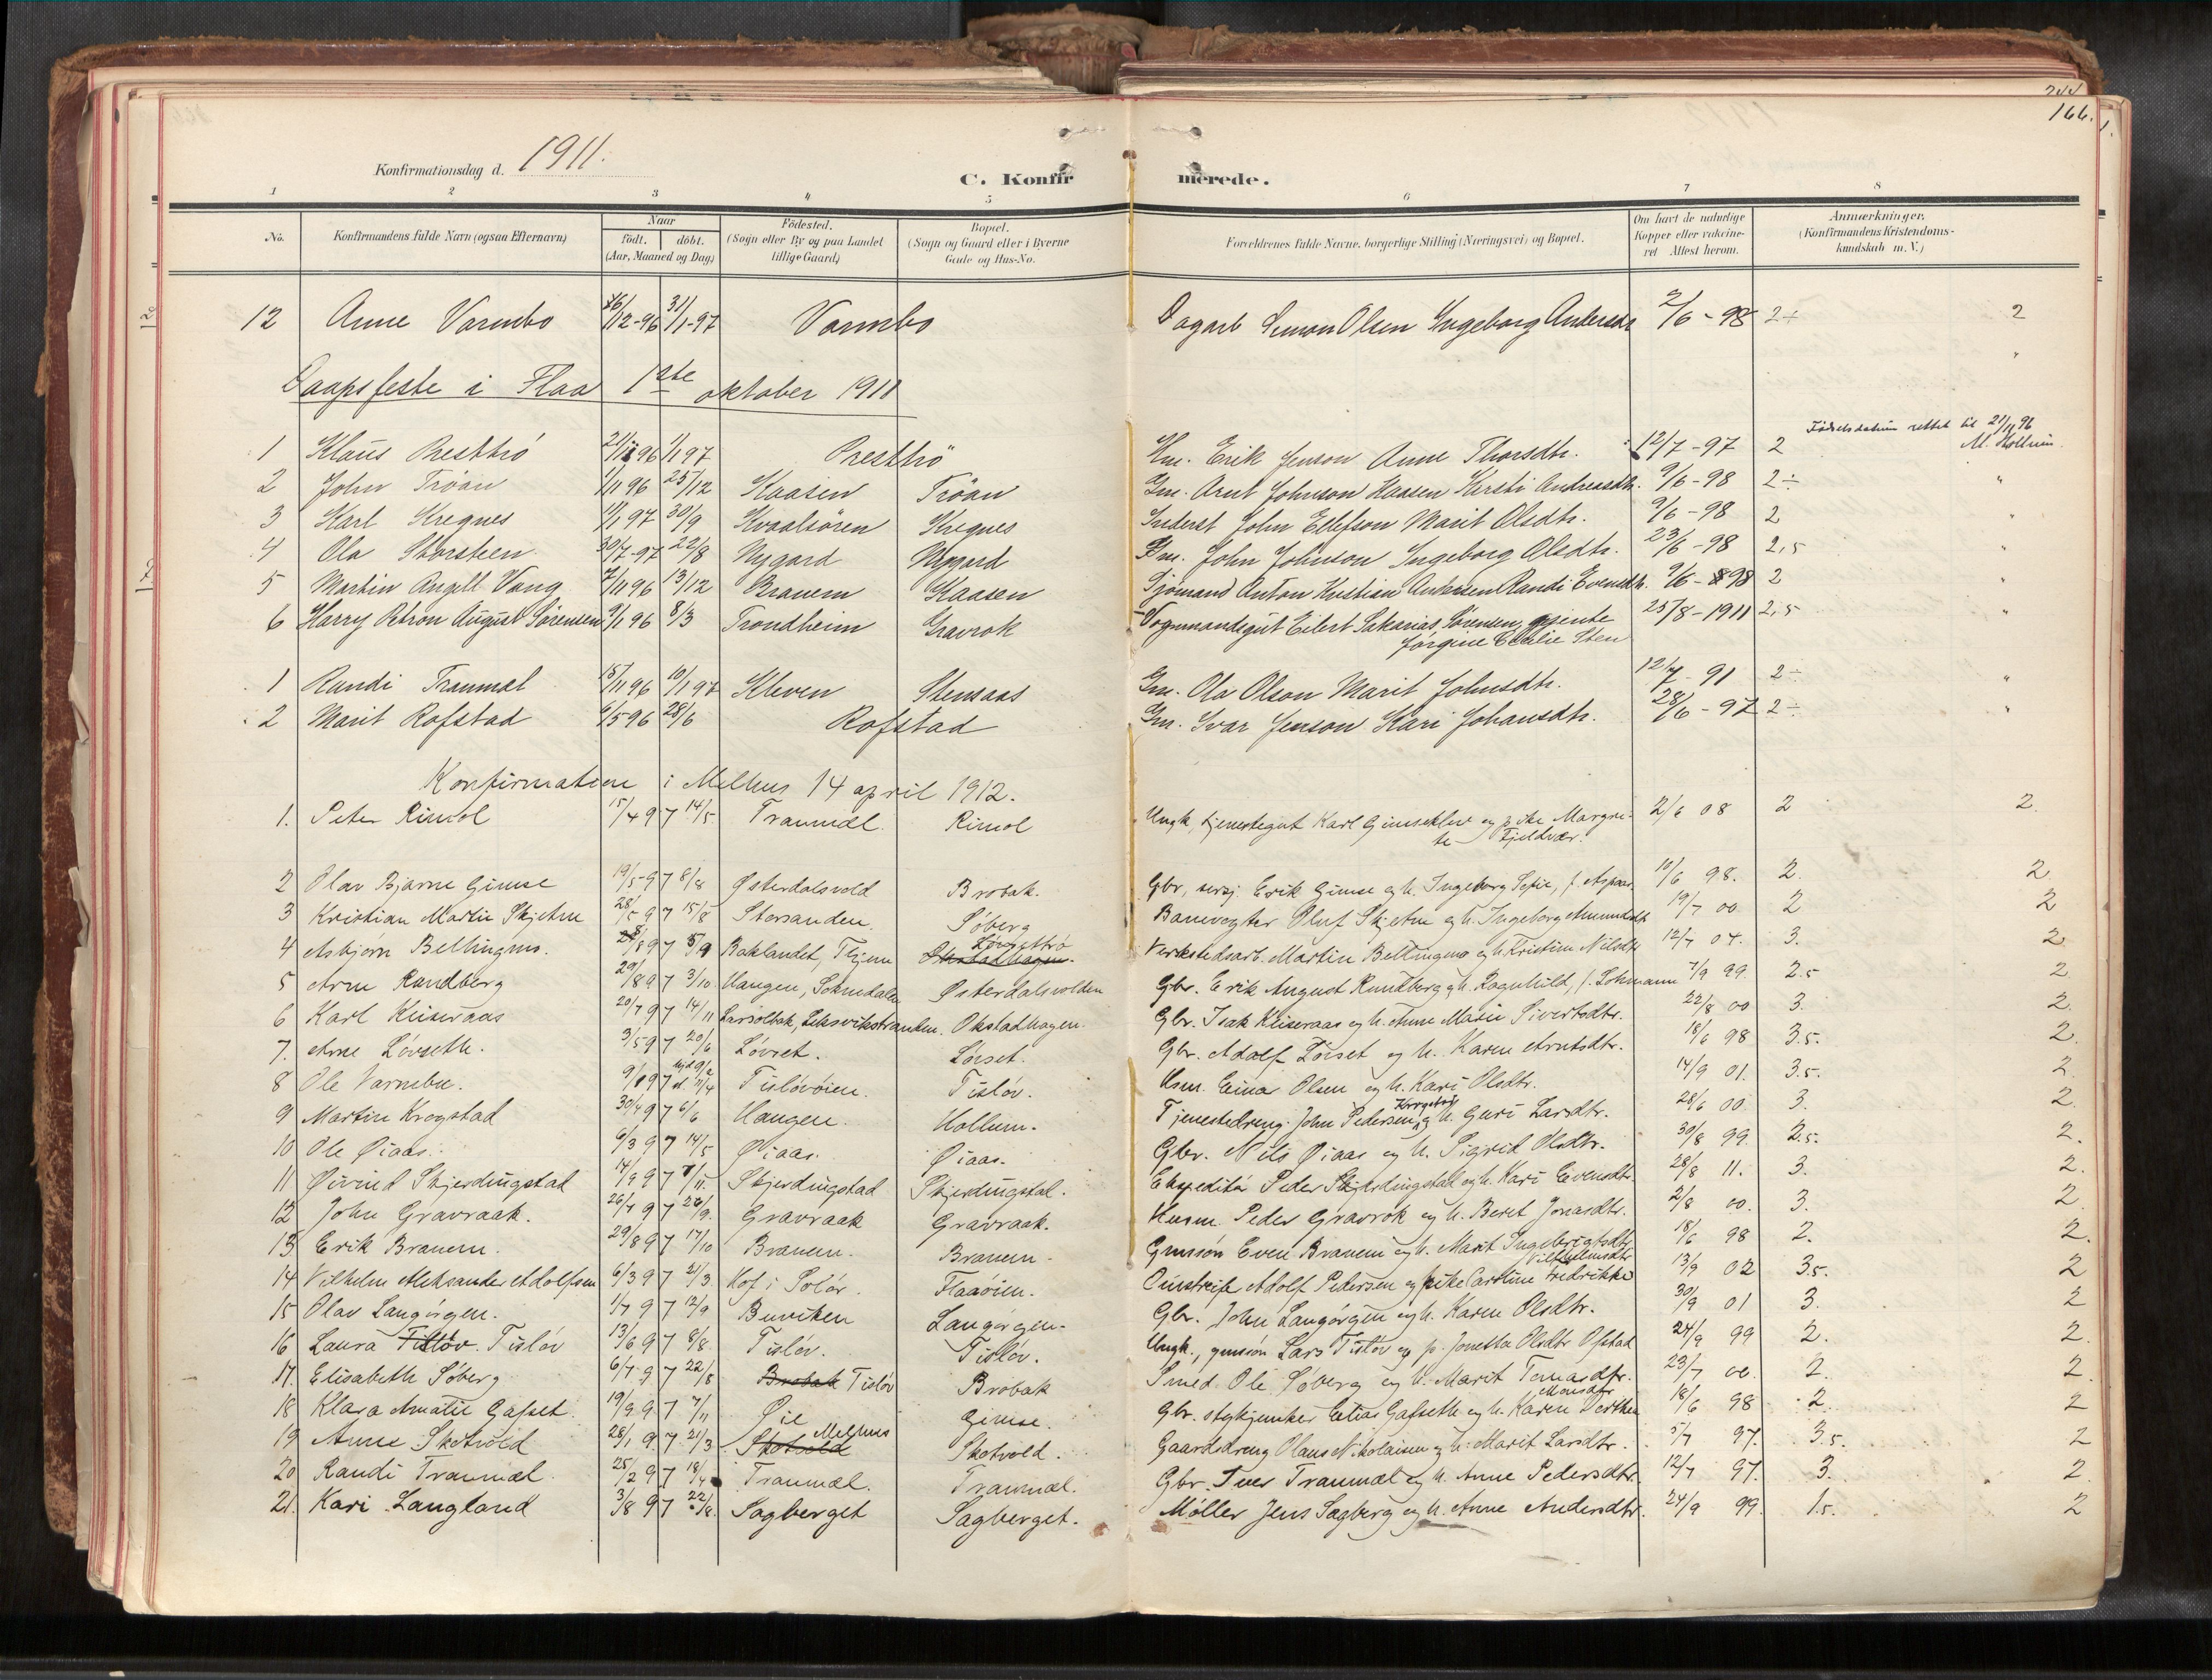 166.
Konfirmationsdag d. 1911.
C. Konfirmerede.
1 2 3 4 5 6 7 8
No. Konfirmandens fulde Navn (ogsaa Efternavn) Naar født. døbt. (Aar, Maaned og Dag) Födested. (Sogn eller By og paa Landet tillige Gaard) Bopæl. (Sogn og Gaard eller i Byerne Gade og Hus-No. Forældrenes fulde Navne, borgerlige Stilling (Næringsvei) og Bopæl. Om havt de naturlige Kopper eller vakcineret Attest herom. Anmærkninger. (Konfirmandens Kristendomskundskab m. V.)
12 Anne Varmbo 16/12-96 31/1-97 Varmbo Dagarb Simon Olsen Ingeborg Andersdr 2/6-98 2÷ 2
Daapsfeste i Flaa 1ste oktober 1911
Fødselsdatum rettet til 21/11 96
1 Klaus Presthrö 21/11 96 1/1 97 Presthrö Hm. Erik Jenson Anne Thorsdtr. 12/7-97 2
2 John Tröan 1/11 96 25/12 Kaasen Tröan Gm. Arnt Johnson Kaasen Kirsti Andreasdtr. 9/6-98 2÷ "
3 Karl Kregnes 11/1 97 30/9 Kvaalsören Kregnes Inderst John Ellefson Marit Olsdtr. 9/6-98 2 "
4 Ola Storsteen 30/7-97 22/8 Nygard Nygard Hm. John Johnson Ingeborg Olsdtr. 23/6-98 2,5 "
5 Martin Angell Vang 7/11 96 13/12 Branem Kaasen Sjömand Anton Kristian Andersen Randi Evensdtr. 9/6-98 2 "
6 Harry Petron August Sörensen 9/1 96 8/3 Trondheim Gravrok Vognmandsgut Eilert Sakarias Sörensen, gjente 25/8-1911 2,5 "
Jørgine Cecilie Sten
1 Randi Tranmæl 15/11 96 10/1 97 Kleven Stensaas Gm. Ola Olson Marit Johnsdtr. 12/7-91 2÷ "
2 Marit Rofstad 6/5-96 28/6 Rofstad Gm. Ivar Jenson Kari Johansdtr. 28/6-97 2÷ "
Konfirmation i Melhus 14 april 1912.
1. Peter Rimol 15/4 97 14/5 Tranmæl. Rimol Ungk, tjenestegut Karl Gimseklev og pike Margre- 2/6 08 2 2.
te Fjeldvær.
2 Olav Bjarne Gimse 19/5-97 8/8 Østerdalsvold Brobak. Gbr, sersj. Erik Gimse og h. Ingeborg Sofie, f. Aspaas 10/6 98. 2. 2.
3 Kristian Martin Skjetne 28/5 97 15/8 Storsanden. Søberg Banevogter Oluf Skjetne og h. Ingeborg Amundsdtr 19/7 00 2 2
4 Asbjørn Bellingmo. /8 97 5/9 Baklandet, Thjem Løvsettrø Verkstedsarb. Martin Bellingmo og h. Kristine Nilsdtr 12/7 04. 3. 2
5 Arne Rundberg 29/8 97 3/10 Haugen, Soknedalen Østerdalsvolden Gbr. Erik August Rundberg og h. Ragnhild, f. Lohmann 7/9 99. 2.5 2.
6 Karl Keiseraas 20/7 97 14/11 Larsolbak, Leksvikstranden. Okstadhagen. Gbr. Isak Keiseraas og h. Anne Marie Sivertsdtr. 22/8 00 3. 2.
7. Arne Løvseth. 3/5 97 20/6 Løvset. Løvset. Gbr. Adolf Løvset og h. Karen Arntsdtr. 18/6 98 3.5. 2.
8 Ole Varmbu. 9/1 97 11/4 Tisløvøien. Tisløv. Hsm. Einar Olsen og h. Kari Olsdtr. 14/9 01. 3.5. 2.
9 Martin Krogstad 30/4 97 6/6 Haugen. Hollum. Tjenestedreng John Pedersen Krogstad og h. Guri Larsdtr. 28/6 00 3. 2.
10 Ole Øiaas. 6/3 97 14/5 Øiaas. Øiaas. Gbr. Nils Øiaas og h. Sigrid Olsdtr. 30/8 99. 2.5. 2.
11 Øivind Skjerdingstad 14/9 97 7/11. Skjerdingstad Skjerdingstad. Ekspeditør Peder Skjerdingstad og h. Kari Evensdtr. 28/8 11. 3. 2.
12 John Gravraak. 26/7 97 26/9. Gravraak Gravraak. Husm. Peder Gravrok og h. Beret Jonasdtr. 2/8 00. 3. 2
13 Erik Branem. 29/8 97 17/10 Branem. Branem. Gmssøn Even Branem og h. Marit Ingebrigtsdtr 18/6 98 2. 2.
14 Vilhelm Aleksander Adolfsen 6/3 97 21/3 Hof i Solør. Flaaøien. Omstreife Adolf Pedersen og pike Caroline Fredrikke Vilhelmsdtr 13/9 02 3.5. 2
15 Olav Langørgen. 1/7 97 12/9 Buviken Langørgen. Gbr. John Langørgen og h. Karen Olsdtr. 30/9 01 3. 2
16 Laura Tisløv Tisløv 13/6 97 8/8 Tisløv. Tisløv. Ungk., gmssøn Lars Tisløv og p. Jonetta Olsdtr Ofstad 24/9 99 2. 2.
17. Elisabeth Søberg 6/7 97 22/8 Brobak Tisløv Brobak Smed Ole Søberg og h. Marit Tomasdtr. 23/7 00. 2. 2.
18 Klara Amalie Gafset. 19/9 97 7/11 Øie Gimse. Gbr. stykjunker Elias Gafseth og h. Karen Dorthea Monsdtr 18/6 98 2. 2
19 Anne Skotvold 28/1 97 21/3 Skotvold Melhus Skotvold. Gaardsdreng Olaus Nikolaisen og h. Marit Larsdtr. 5/7 97. 3.5. 2
20 Randi Tranmæl 25/2 97 18/4 Tranmæl. Tranmæl. Gbr. Iver Tranmæl og h. Anne Pedersdtr. 12/7 97. 3. 2.
21. Kari Langland 3/8 97 22/8. Sagberget Sagberget. Møller Jens Sagberg og h. Anne Andersdtr. 24/9 99. 1.5. 2